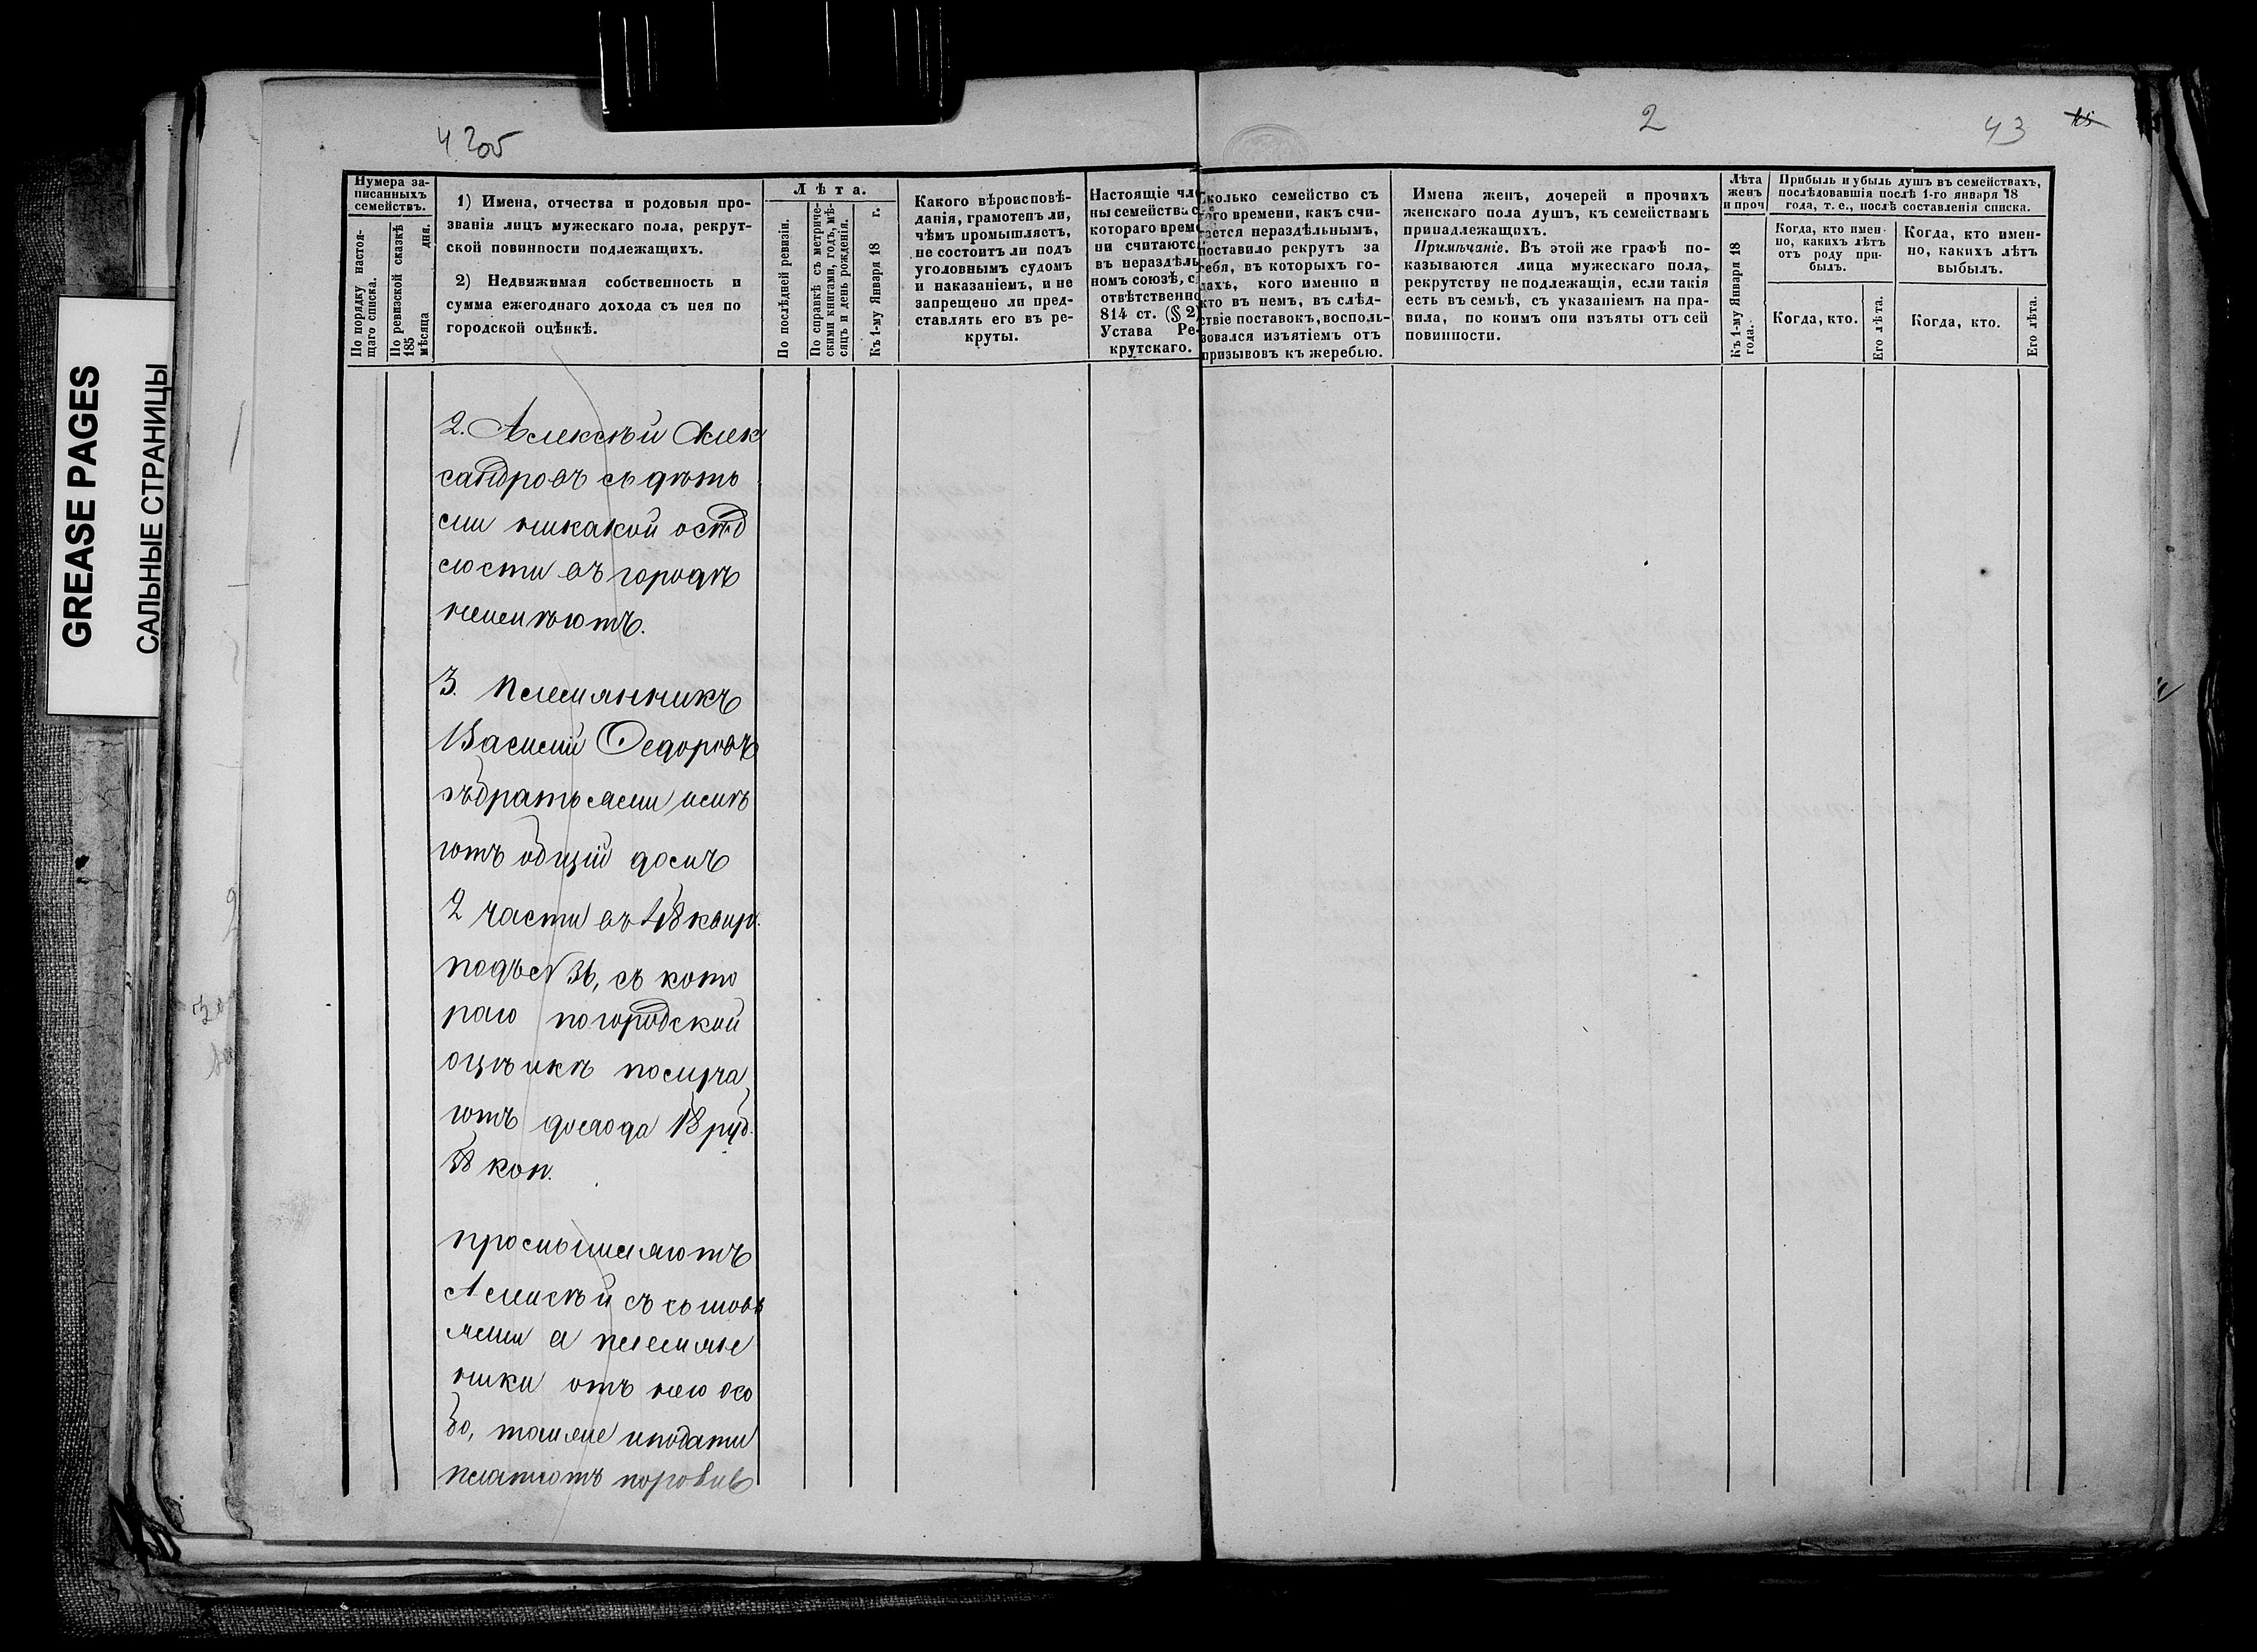 GREASE PAGES
САЛЬНЫЕ СТРАНИЦЫ
2
43
Нумера за-
писанныхъ
семействъ.
По порядку настоя-
щаго списка.
По ревизской сказкѣ
185 мѣсяца дня.
1) Имена, отчества и родовыя про-
званія лицъ мужескаго пола, рекрут-
ской повинности подлежащихъ.
2) Недвижимая собственность и
сумма ежегоднаго дохода съ нея по
городской оцѣнкѣ.
Лѣта.
По послѣдней ревизіи.
По справкѣ съ метриче-
скими книгами, годъ, мѣ-
сяцъ и день рожденія.
Къ 1-му Января 18 г.
Какого вѣроисповѣ-
данія, грамотенъ ли,
чѣмъ промышляетъ,
не состоитъ ли подъ
уголовнымъ судомъ
и наказаніемъ, и не
запрещено ли пред-
ставлять его въ ре-
круты.
Настоящіе чле
ны семейства с
котораго време
ни считаются
въ нераздѣль
номъ союзѣ, с
отвѣтственно
814 ст. (§ 2)
Устава Ре-
крутскаго.
Сколько семейство съ
того времени, какъ счи-
тается нераздѣльнымъ,
поставило рекрутъ за
себя, въ которыхъ го-
дахъ, кого именно и
кто въ немъ, въ слѣд-
ствіе поставокъ, восполь-
зовался изъятіемъ отъ
призывовъ къ жеребью.
Имена женъ, дочерей и прочихъ
женскаго пола душъ, къ семействамъ
принадлежащихъ.
Примѣчаніе. Въ этой же графѣ по-
казываются лица мужескаго пола,
рекрутству не подлежащія, если такія
есть въ семьѣ, съ указаніемъ на пра-
вила, по коимъ они изъяты отъ сей
повинности.
Лѣта
женъ
и проч
Къ 1-му Января 18
года.
Прибыль и убыль душъ въ семействахъ,
послѣдовавшія послѣ 1-го января 18
года, т. е., послѣ составленія списка.
Когда, кто имен-
но, какихъ лѣтъ
отъ роду при-
былъ.
Когда, кто.
Его лѣта.
Когда, кто имен-
но, какихъ лѣтъ
выбылъ.
Когда, кто.
Его лѣта.
2. Алексѣй Алек
сандровъ съ дѣть
ми никакой осѣд
лости въ городѣ
неимѣютъ.
3. Племянникъ
Василій Ѳедоровъ
съ братьями имѣ
ютъ общій домъ
2 части въ 48 кварт.
подъ № 36, съ кото
раго погородской
оцѣнкѣ получа
ютъ дохода 18 руб.
коп.
промышляютъ
Алексѣй съ сыновь
ями а племян
ники отъ него осо
бо, также иподати
платютъ порознь